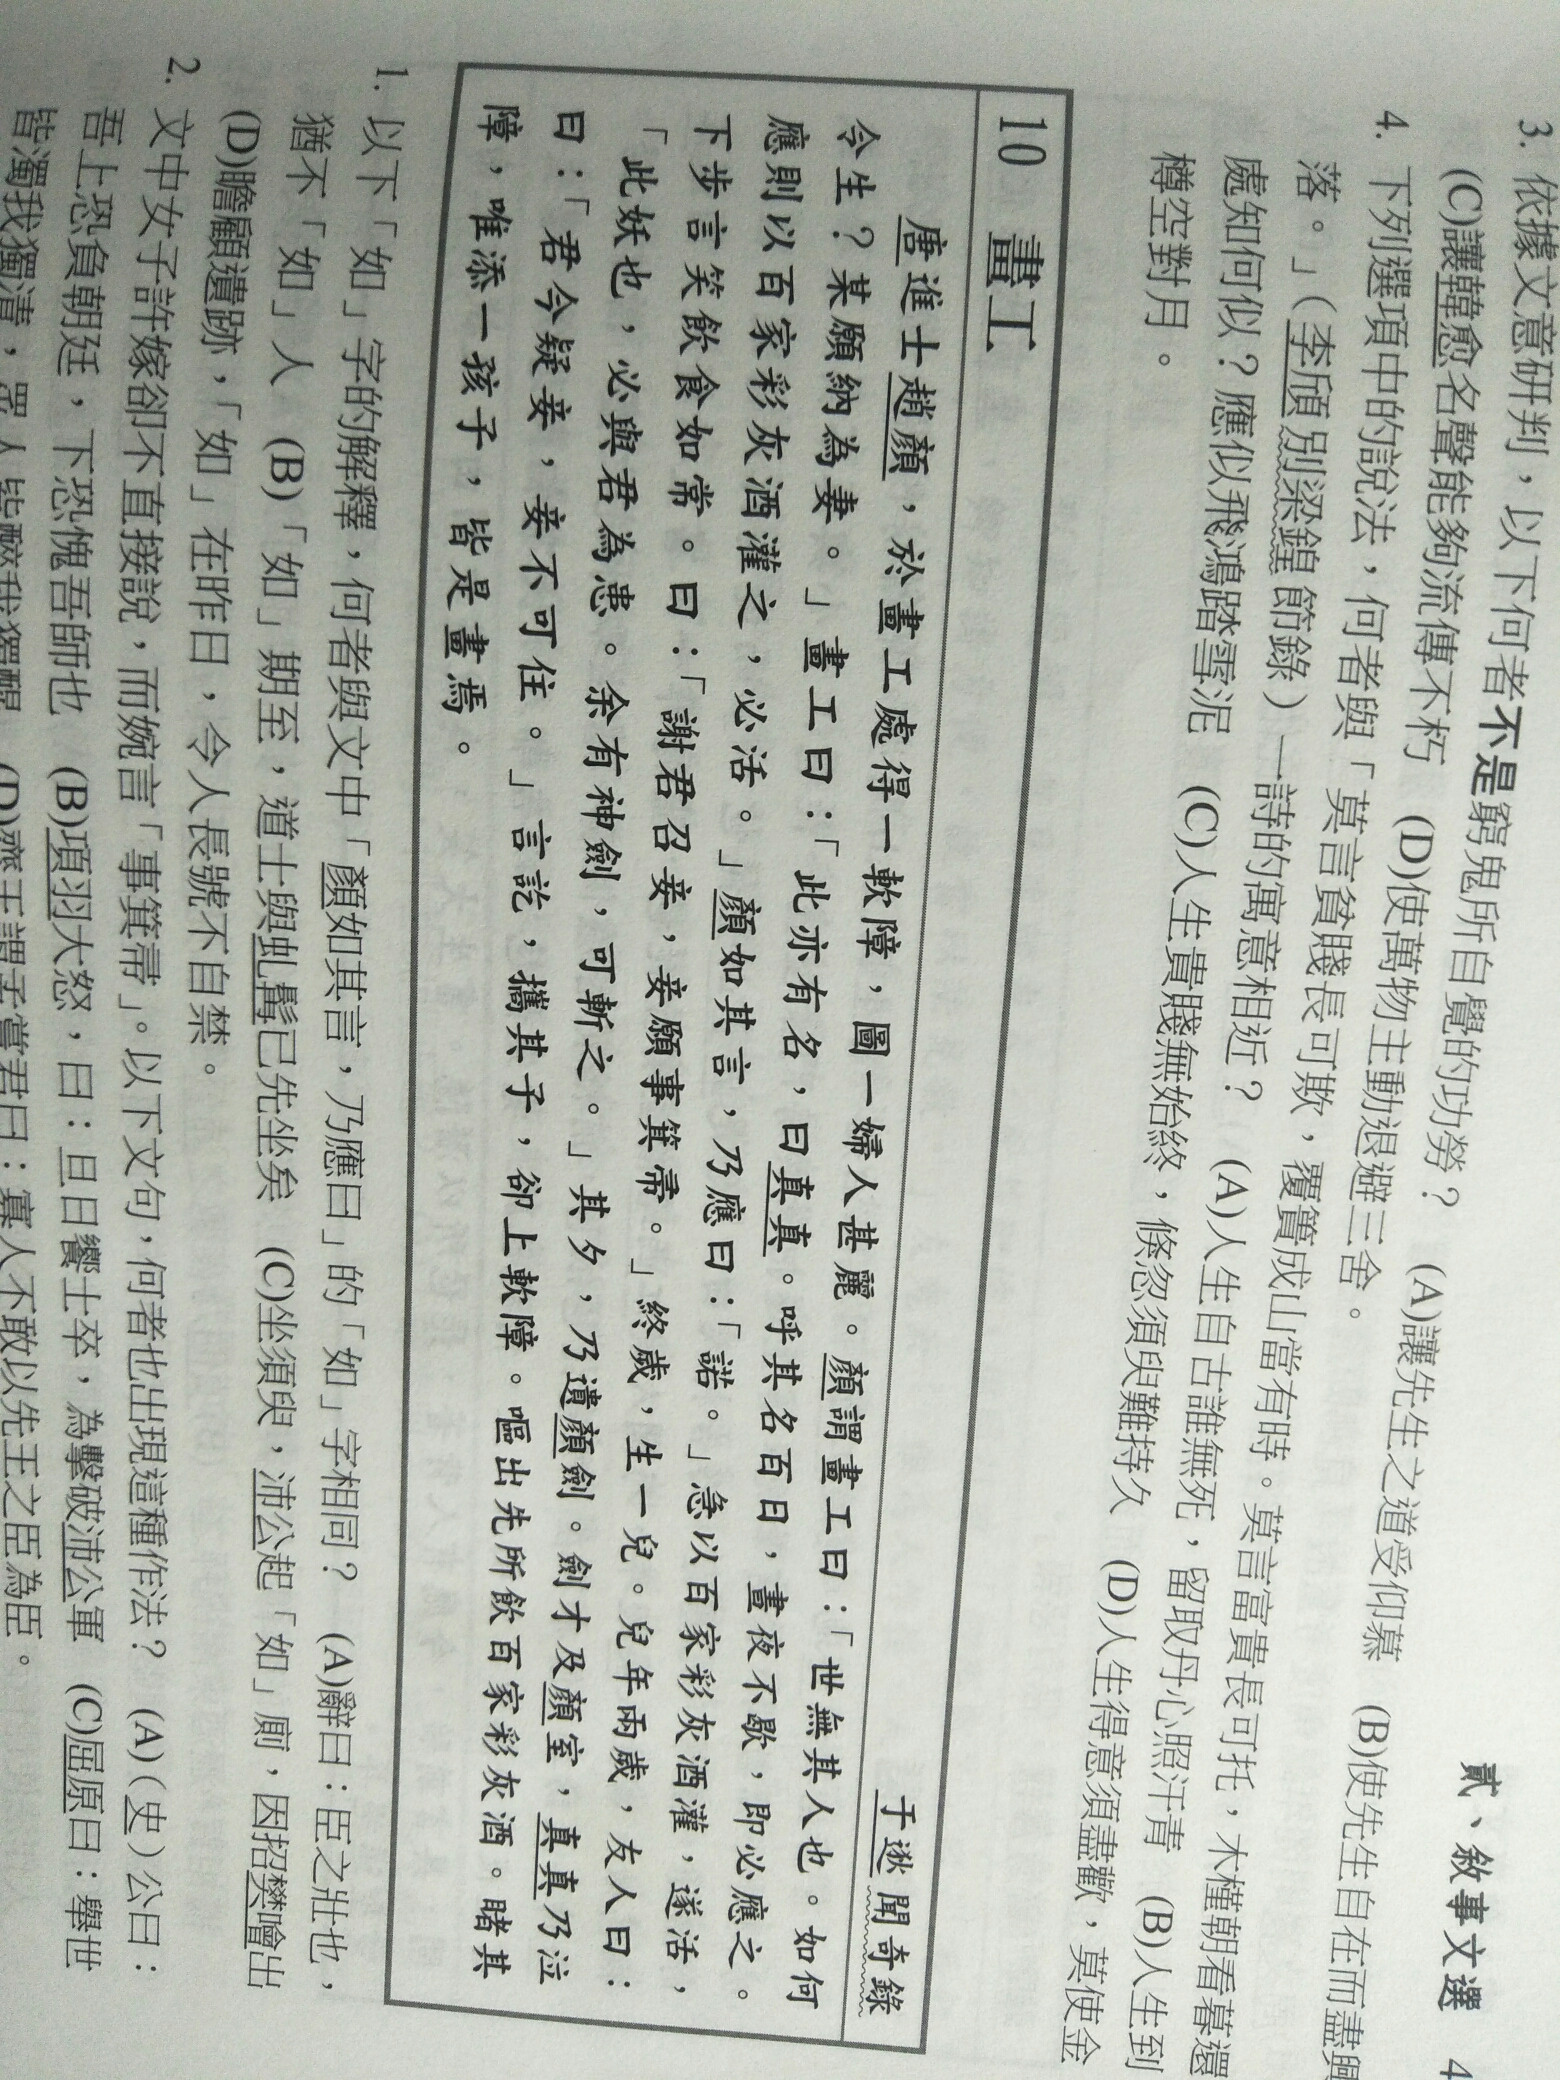 貳、敘事文選 4
3. 依據文意研判，以下何者不是窮鬼所自覺的功勞？ (A)讓先生之道受仰慕 (B)使先生自在而盡興
(C)讓韓愈名聲能夠流傳不朽 (D)使萬物主動退避三舍。
4. 下列選項中的說法，何者與「莫言貧賤長可欺，覆簣成山當有時。莫言富貴長可托，木槿朝看暮還
落。」（李頎別梁鍠節錄）一詩的寓意相近？ (A)人生自古誰無死，留取丹心照汗青 (B)人生到
處知何似？應似飛鴻踏雪泥 (C)人生貴賤無始終，倏忽須臾難持久 (D)人生得意須盡歡，莫使金
樽空對月。
10 畫工
于逖聞奇錄
唐進士趙顏，於畫工處得一軟障，圖一婦人甚麗。顏謂畫工曰：「世無其人也。如何
令生？某願納為妻。」畫工曰：「此亦有名，曰真真。呼其名百日，晝夜不歇，即必應之。
應則以百家彩灰酒灌之，必活。」顏如其言，乃應曰：「諾。」急以百家彩灰酒灌，遂活，
下步言笑飲食如常。曰：「謝君召妾，妾願事箕帚。」終歲，生一兒。兒年兩歲，友人曰：
「此妖也，必與君為患。余有神劍，可斬之。」其夕，乃遺顏劍。劍才及顏室，真真乃泣
曰：「君今疑妾，妾不可住。」言訖，攜其子，卻上軟障。嘔出先所飲百家彩灰酒。睹其
障，唯添一孩子，皆是畫焉。
1. 以下「如」字的解釋，何者與文中「顏如其言，乃應曰」的「如」字相同？ (A)辭曰：臣之壯也，
猶不「如」人 (B)「如」期至，道士與虬髯已先坐矣 (C)坐須臾，沛公起「如」廁，因招樊噲出
(D)瞻顧遺跡，「如」在昨日，令人長號不自禁。
2. 文中女子許嫁卻不直接說，而婉言「事箕帚」。以下文句，何者也出現這種作法？ (A)（史）公曰：
吾上恐負朝廷，下恐愧吾師也 (B)項羽大怒，曰：旦日饗士卒，為擊破沛公軍 (C)屈原曰：舉世
皆濁我獨清，眾人皆醉我獨醒 (D)齊王謂孟嘗君曰：寡人不敢以先王之臣為臣。